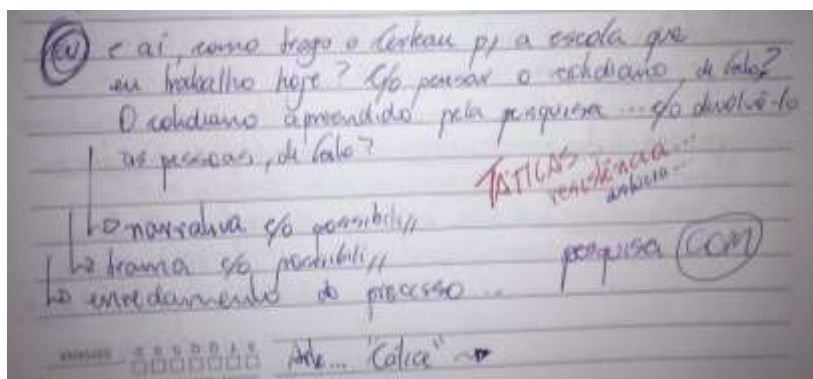 (EU) e aí, como trago o Certeau p/ a escola que
eu trabalho hoje? C/o pensar o cotidiano, de fato?
O cotidiano apreendido pela pesquisa ... c/o devolvê-lo
as pessoas, de fato?
TÁTICAS
resistência...
astúcia...
↳ narrativa c/o possibili//
↳ trama c/o possibili//
↳ enredamento do processo ...
pesquisa (COM)
Arte... "Cálice" →